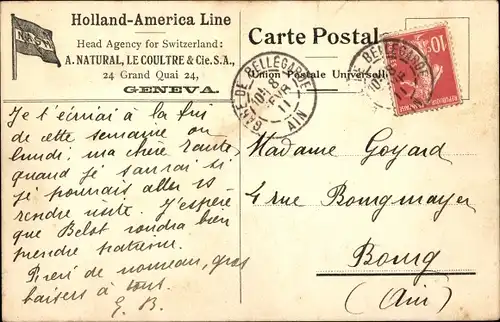 N A S M
Holland-America Line
Head Agency for Switzerland:
A. NATURAL, LE COULTRE & Cie. S.A.,
24 Grand Quai 24,
GENEVA.
Carte Postale
Union Postale Universelle
GARE DE BELLEGARDE
8
FEVR
11
AIN
GARE DE BELLEGARDE
11
10
REPUBLIQUE FRANÇAISE
Je t'écrirai à la fin
de cette semaine ou
lundi, ma chère
quand je saurai si
je pourrais aller
rendre visite. J'espère
que Belot voudra bien
prendre
de nouveau, gros
baisers à tous
G. B.
Madame Goyard
4 rue Bourgmayer
Bourg
(Ain)